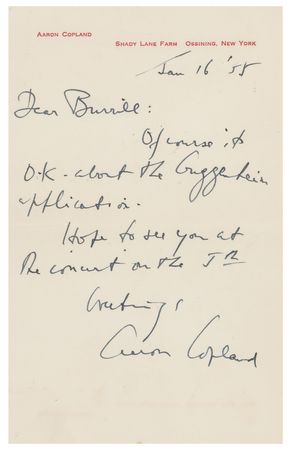 AARON COPLAND
SHADY LANE FARM OSSINING, NEW YORK
Jan 16 '55
Dear Burrill:
Of course it's
O.K. about the Guggenheim
application.
Hope to see you at
the concert on the 5th
Greetings
Aaron Copland